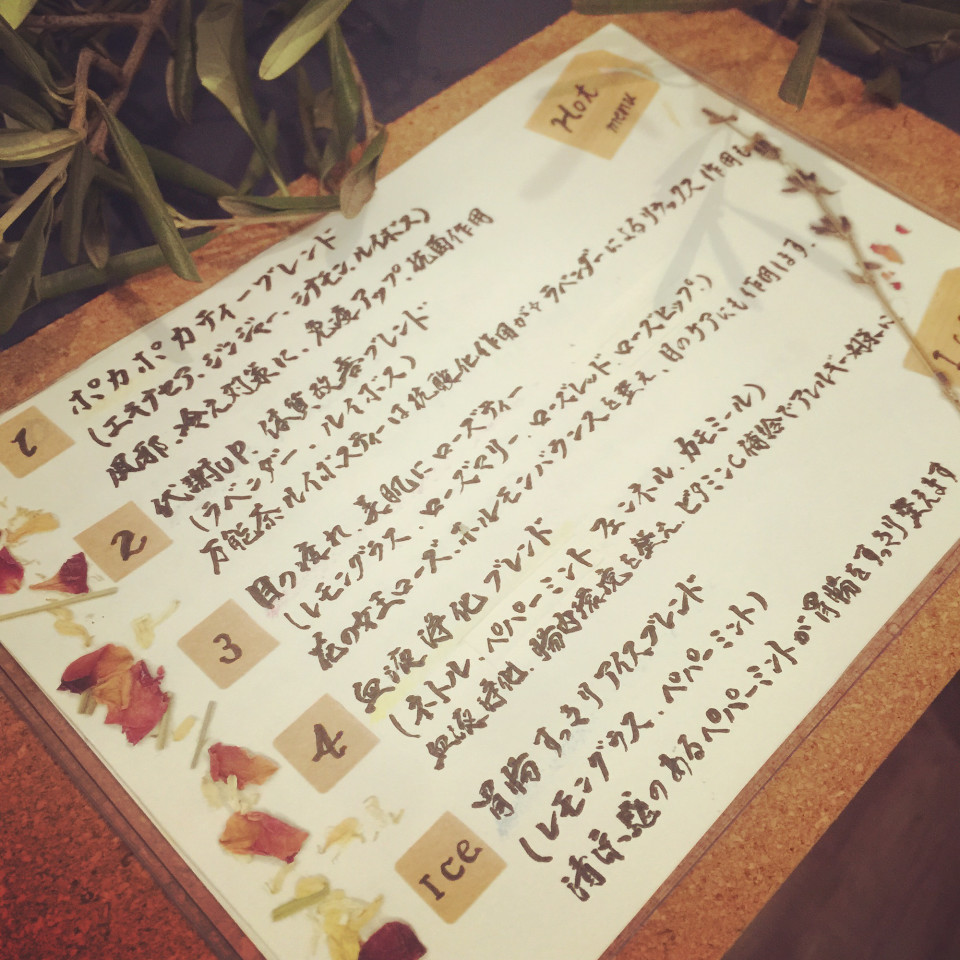 Hot
menu
1
ポカポカティーブレンド
(エキナセア、ジンジャー、シナモン、ルイボス)
風邪、冷え対策に、免疫アップ、抗菌作用
2
代謝UP、体質改善ブレンド
(ラベンダー、ルイボス)
万能茶ルイボスティーは抗酸化作用が
ラベンダーによるリラックス作用も
3
目の疲れ、美肌にローズティー
(レモングラス、ローズマリー、ローズレッド、ローズヒップ)
花の女王ローズ、ホルモンバランスを整え、目のケアにも作用します。
4
血液浄化ブレンド
(ネトル、ペパーミント フェンネル、カモミール)
血液浄化、腸内環境を整え、ビタミンC補給でアレルギー対策に
Ice
胃腸すっきりアイスブレンド
(レモングラス、ペパーミント)
清涼感のあるペパーミントが胃腸をすっきり整えます